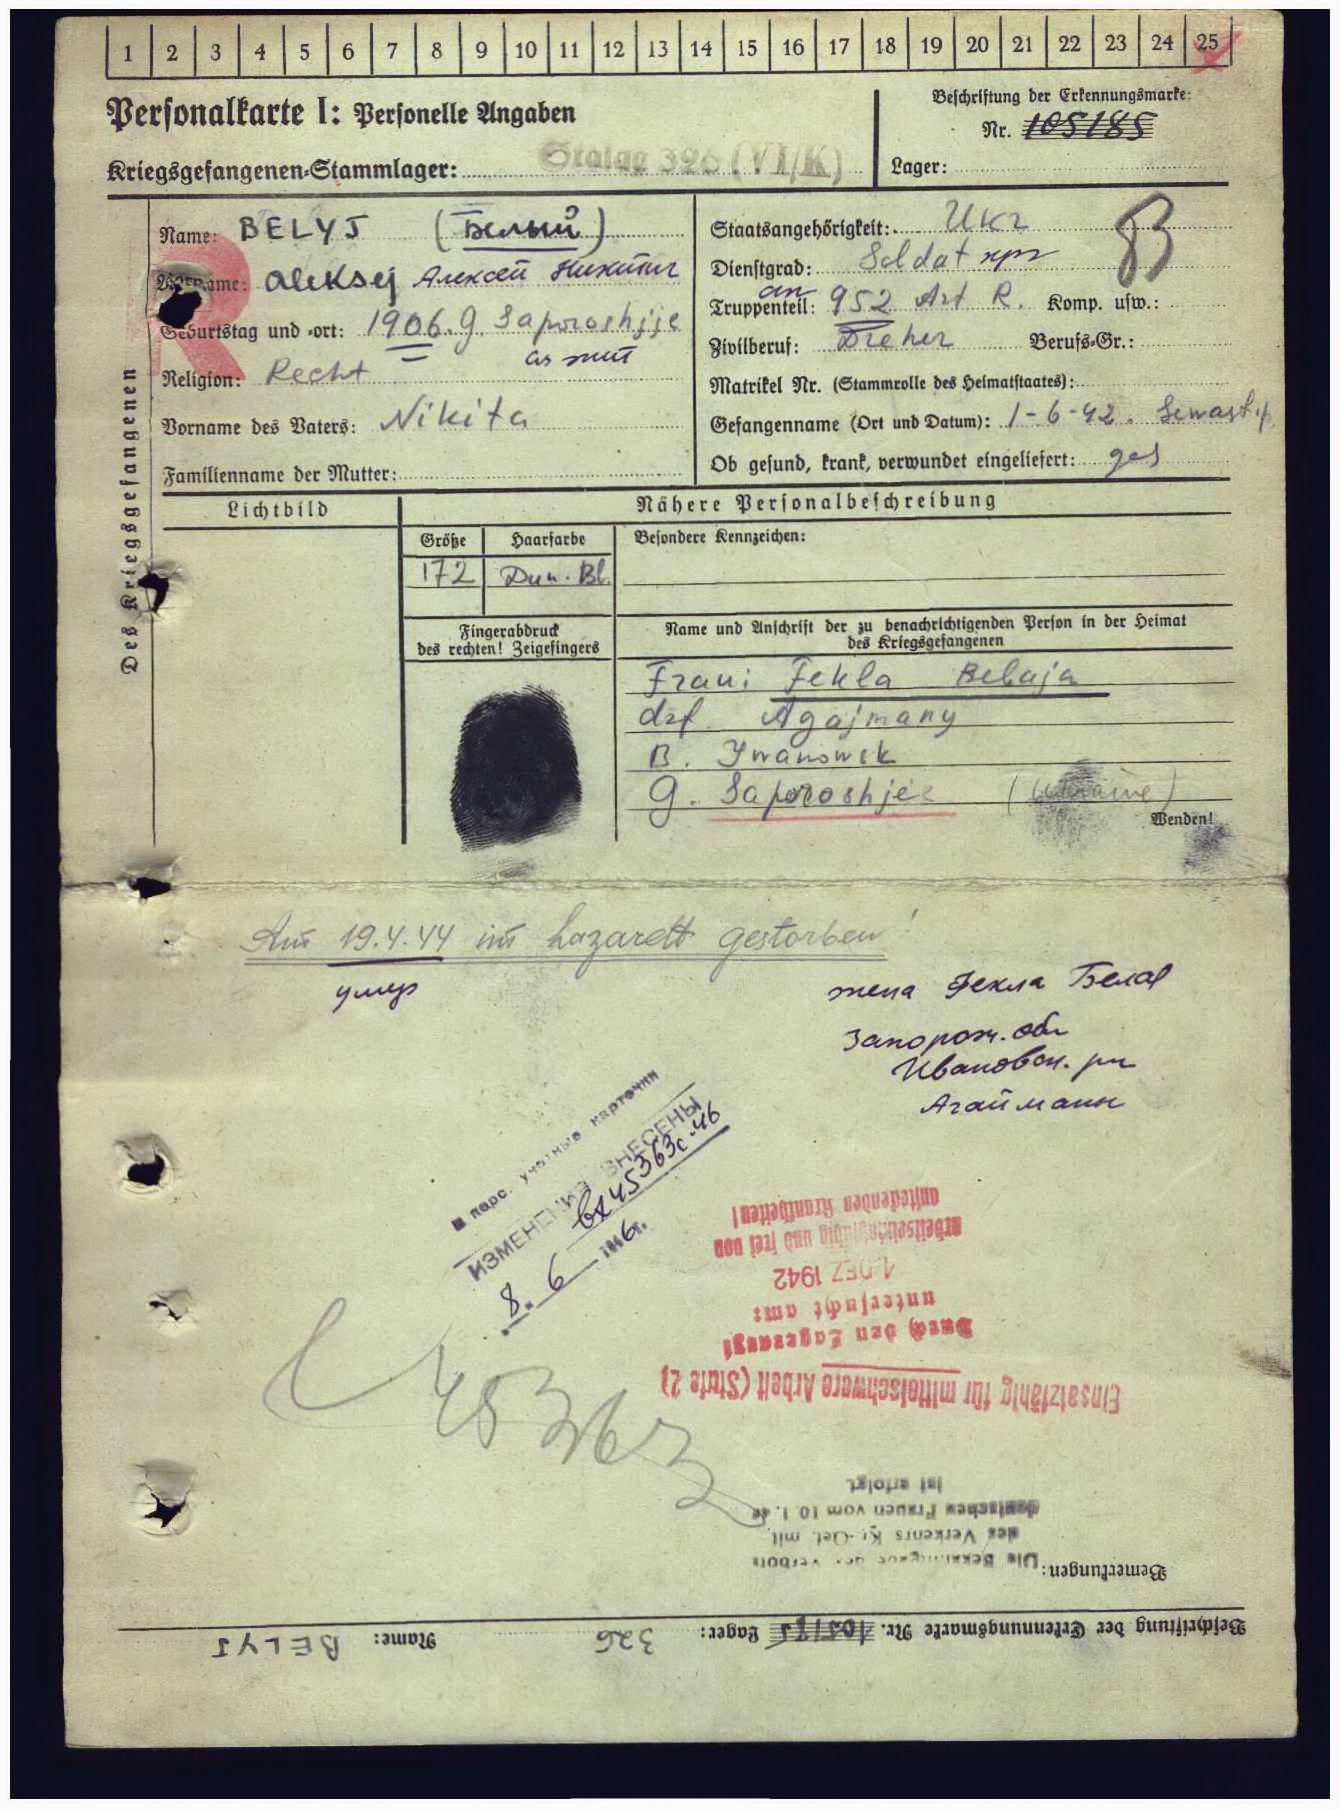 1 2 3 4 5 6 7 8 9 10 11 12 13 14 15 16 17 18 19 20 21 22 23 24 25
Personalkarte I: Personelle Angaben
Beschriftung der Erkennungsmarke:
Nr. 105185
Kriegsgefangenen-Stammlager: Stalag 326 (VI/K)
Lager:
Des Kriegsgefangenen
Name: BELYJ (Белый)
Vorname: Aleksej Алексей Никитич
Geburtstag und -ort: 1906. g. Saporoshje
Religion: Recht
Vorname des Vaters: Nikita
Familienname der Mutter:
Staatsangehörigkeit: Ukr
Dienstgrad: Soldat кр
Truppenteil: 952 Art R. Komp. usw.:
ап
Zivilberuf: Dreher Berufs-Gr.:
Matrikel Nr. (Stammrolle des Heimatstaates):
Gefangenname (Ort und Datum): 1-6-42. Sewastop
Ob gesund, krank, verwundet eingeliefert: ges
Lichtbild
Nähere Personalbeschreibung
Größe Haarfarbe Besondere Kennzeichen:
172 Dun. Bl.
Fingerabdruck
des rechten! Zeigefingers
Name und Anschrift der zu benachrichtigenden Person in der Heimat
des Kriegsgefangenen
Frau: Fekla Belaja
drf. Agajmany
B. Iwanowsk
g. Saporoshje (Ukraine)
Wenden!
Am 19.4.44 im Lazarett gestorben!
умер
жена Фекла Белая
Запорож. обл
Ивановск. рн
Агайманы
В перс. учетные карточки
ИЗМЕНЕНИЯ ВНЕСЕНЫ
вх 45363с-46
8. 6 1946г.
45363
Einsatzfähig für mittelschwere Arbeit (Stufe 2)
Durch den Lagerarzt
untersucht am:
4. DEZ 1942
arbeitseinsatzfähig und frei von
ansteckenden Krankheiten!
Bemerkungen: Die Bekanntgabe des Verbots
des Verkehrs Kr.-Gef. mit
deutschen Frauen vom 10. 1. 40
ist erfolgt.
Beschriftung der Erkennungsmarke Nr. 105185 Lager: 326 Name: BELYJ